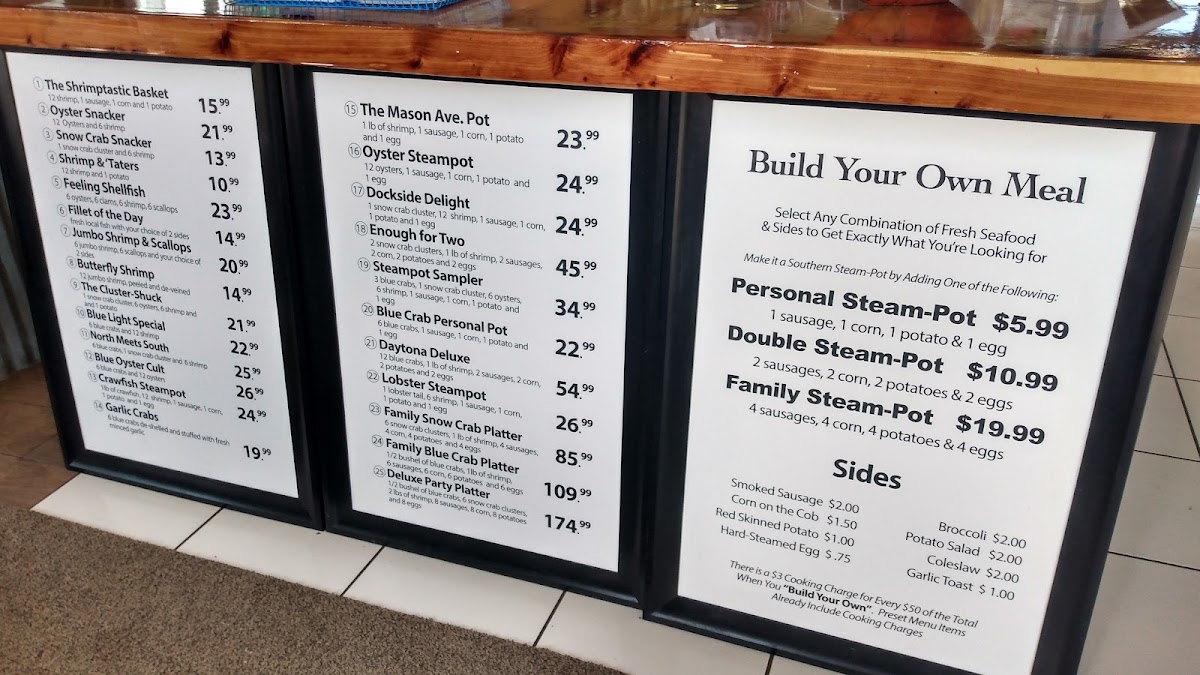 1 The Shrimptastic Basket 15.99
12 shrimp, 1 sausage, 1 corn and 1 potato
2 Oyster Snacker 21.99
12 Oysters and 6 shrimp
3 Snow Crab Snacker 13.99
1 snow crab cluster and 6 shrimp
4 Shrimp & 'Taters 10.99
12 shrimp and 1 potato
5 Feeling Shellfish 23.99
6 oysters, 6 clams, 6 shrimp, 6 scallops
6 Fillet of the Day 14.99
fresh local fish with your choice of 2 sides
7 Jumbo Shrimp & Scallops 20.99
6 jumbo shrimp, 6 scallops and your choice of
2 sides
8 Butterfly Shrimp 14.99
12 jumbo shrimp, peeled and de-veined
9 The Cluster-Shuck 21.99
1 snow crab cluster, 6 oysters, 6 shrimp and
and 1 potato
10 Blue Light Special 22.99
6 blue crabs and 12 shrimp
11 North Meets South 25.99
6 blue crabs, 1 snow crab cluster and 6 shrimp
12 Blue Oyster Cult 26.99
6 blue crabs and 12 oysters
13 Crawfish Steampot 24.99
1lb of crawfish, 12 shrimp, 1 sausage, 1 corn,
1 potato and 1 egg
14 Garlic Crabs 19.99
6 blue crabs de-shelled and stuffed with fresh
minced garlic.
15 The Mason Ave. Pot 23.99
1 lb of shrimp, 1 sausage, 1 corn, 1 potato
and 1 egg
16 Oyster Steampot 24.99
12 oysters, 1 sausage, 1 corn, 1 potato and
1 egg
17 Dockside Delight 24.99
1 snow crab cluster, 12 shrimp, 1 sausage, 1 corn,
1 potato and 1 egg
18 Enough for Two 45.99
2 snow crab clusters, 1 lb of shrimp, 2 sausages,
2 corn, 2 potatoes and 2 eggs
19 Steampot Sampler 34.99
3 blue crabs, 1 snow crab cluster, 6 oysters,
6 shrimp, 1 sausage, 1 corn, 1 potato and
1 egg
20 Blue Crab Personal Pot 22.99
6 blue crabs, 1 sausage, 1 corn, 1 potato and
1 egg
21 Daytona Deluxe 54.99
12 blue crabs, 1 lb of shrimp, 2 sausages, 2 corn,
2 potatoes and 2 eggs
22 Lobster Steampot 26.99
1 lobster tail, 6 shrimp, 1 sausage, 1 corn,
1 potato and 1 egg
23 Family Snow Crab Platter 85.99
6 snow crab clusters, 1 lb of shrimp, 4 sausages,
4 corn, 4 potatoes and 4 eggs
24 Family Blue Crab Platter 109.99
1/2 bushel of blue crabs, 1lb of shrimp,
6 sausages, 6 corn, 6 potatoes and 6 eggs
25 Deluxe Party Platter 174.99
1/2 bushel of blue crabs, 6 snow crab clusters,
2 lbs of shrimp, 8 sausages, 8 corn, 8 potatoes
and 8 eggs
Build Your Own Meal
Select Any Combination of Fresh Seafood
& Sides to Get Exactly What You're Looking for
Make it a Southern Steam-Pot by Adding One of the Following:
Personal Steam-Pot $5.99
1 sausage, 1 corn, 1 potato & 1 egg
Double Steam-Pot $10.99
2 sausages, 2 corn, 2 potatoes & 2 eggs
Family Steam-Pot $19.99
4 sausages, 4 corn, 4 potatoes & 4 eggs
Sides
Smoked Sausage $2.00
Corn on the Cob $1.50
Red Skinned Potato $1.00
Hard-Steamed Egg $.75
Broccoli $2.00
Potato Salad $2.00
Coleslaw $2.00
Garlic Toast $ 1.00
There is a $3 Cooking Charge for Every $50 of the Total
When You "Build Your Own". Preset Menu Items
Already Include Cooking Charges